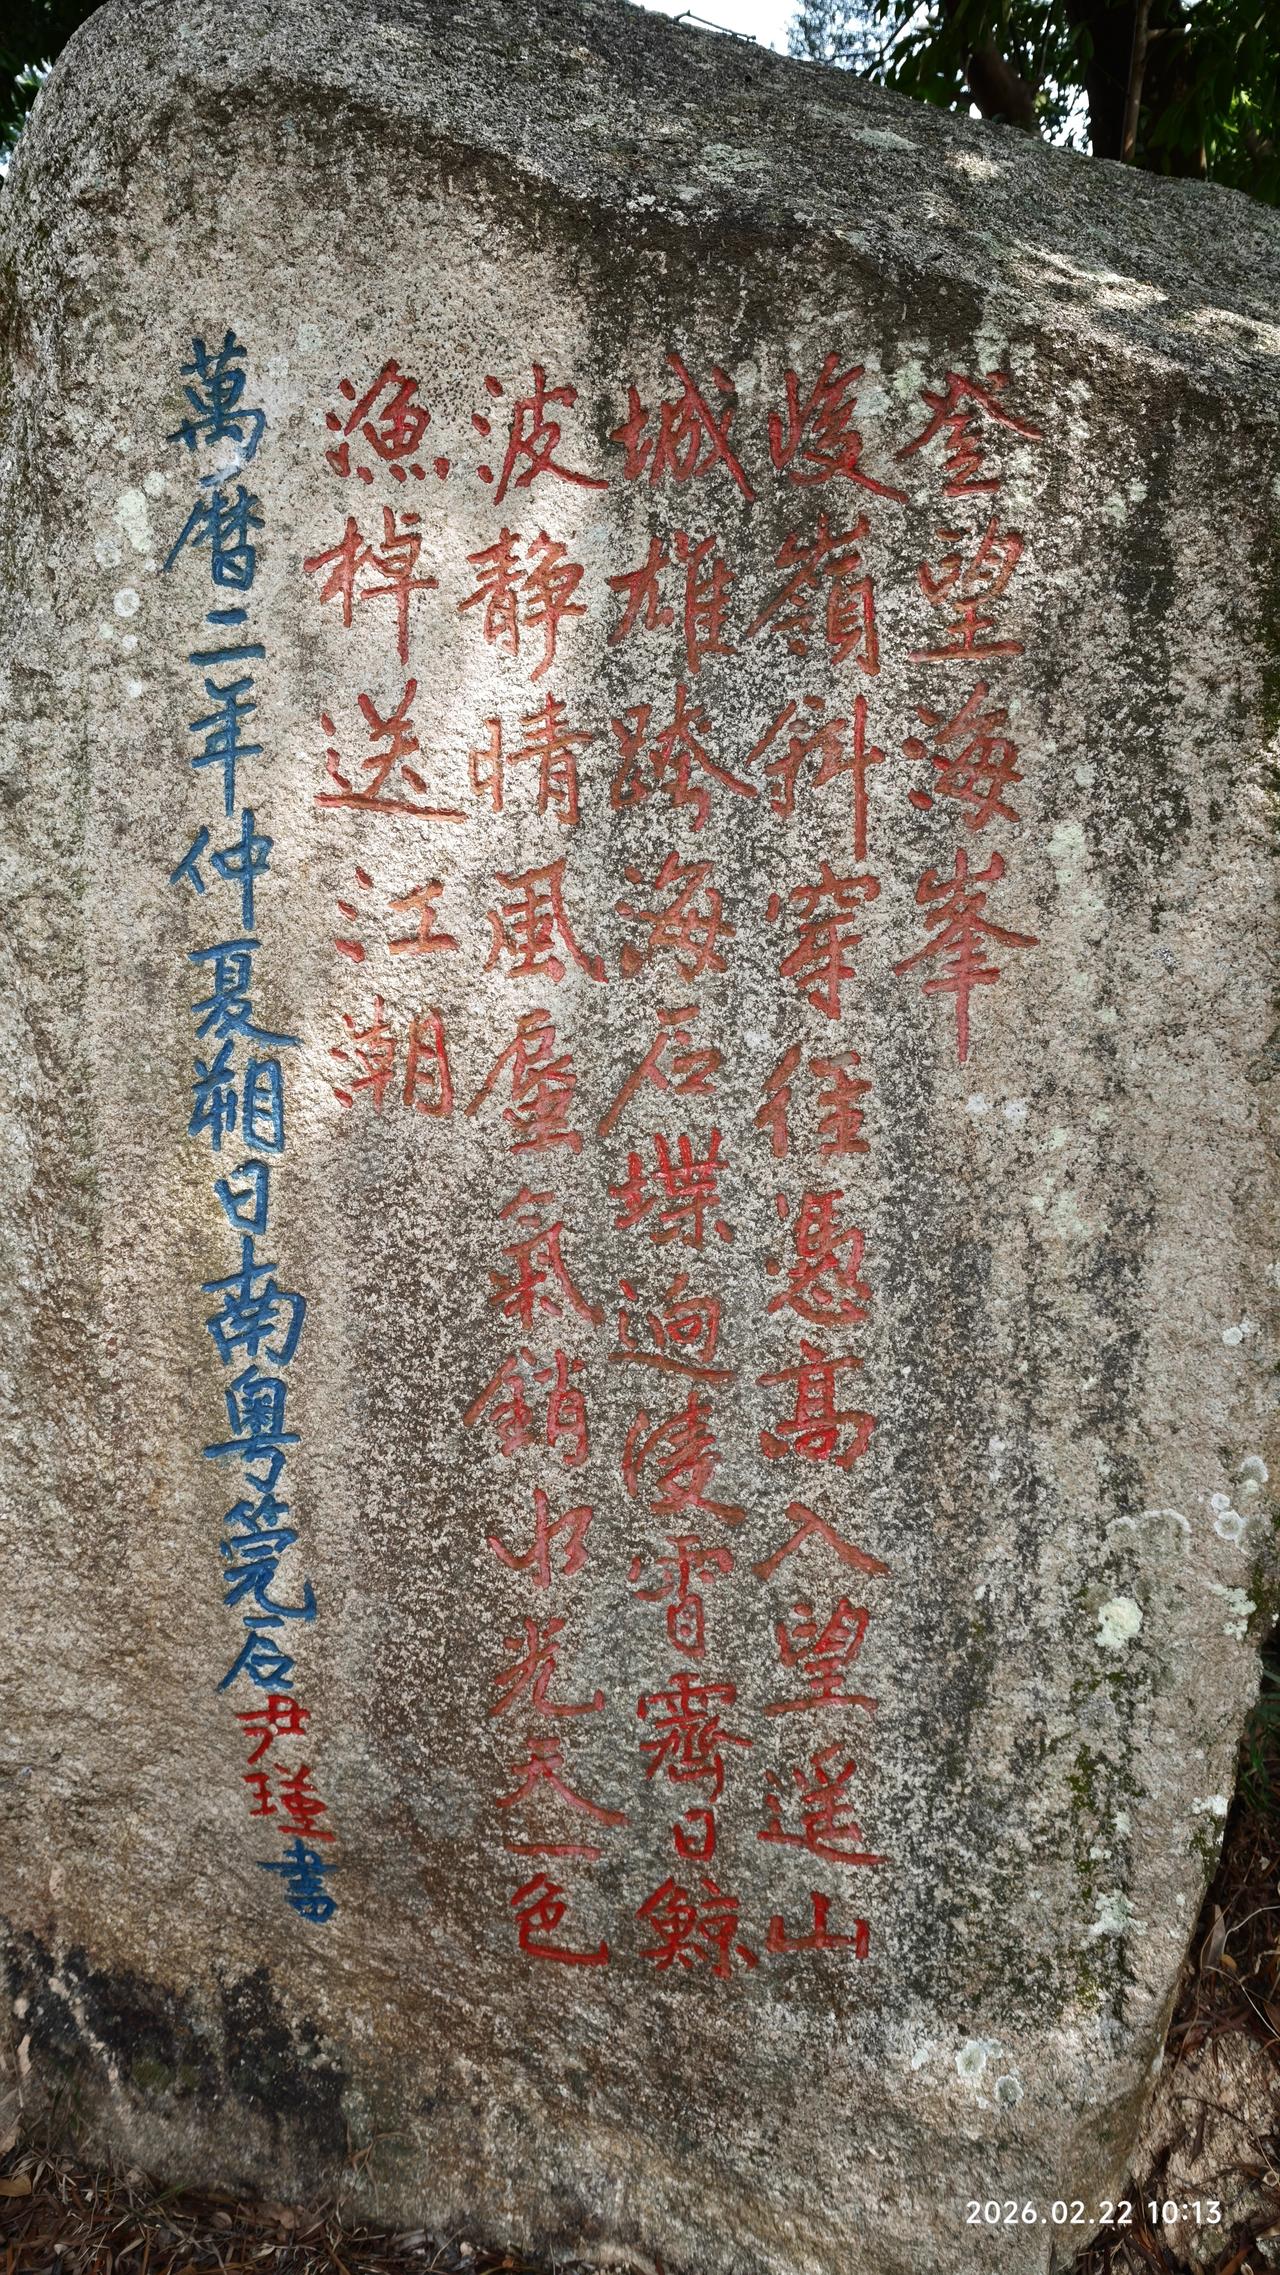 登望海峯
峻嶺斜穿徑憑高入望遥山
城雄跨海石堞逈淩霄霽日鯨
波静晴風蜃氣銷水光天一色
漁棹送江潮
萬暦二年仲夏朔日南粤筦石尹瑾書
2026.02.22 10:13